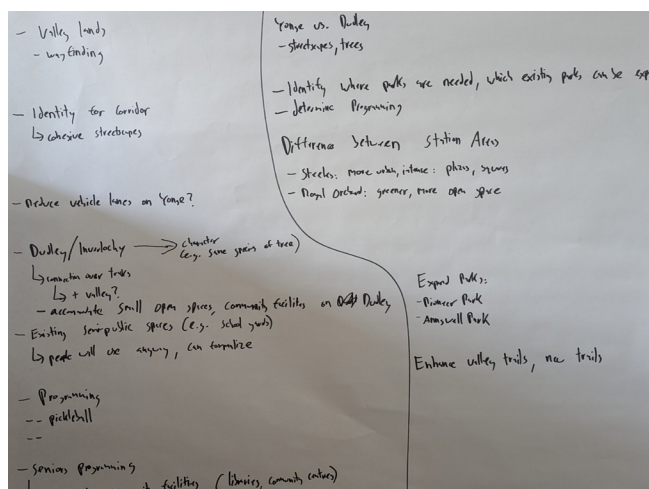 - Valley lands
- wayfinding
- Identity for Corridor
↳ cohesive streetscapes
- Reduce vehicle lanes on Yonge?
- Dudley/Inverlochy → character
(e.g. same species of tree)
↳ connection over tracks
↳ + valley?
- accumulate small open spaces, community facilities on Dudley
- Existing semi-public spaces (e.g. school yards)
↳ people will use anyway, can formalize
- Programming
-- pickleball
--
- Seniors programming
facilities (libraries, community centres)
Yonge vs. Dudley
- streetscapes, trees
- Identify where parks are needed, which existing parks can be exp
- determine Programming
Difference between Station Areas
- Steeles: more urban, intense: plazas, squares
- Royal Orchard: greener, more open space
Expand Parks:
- Pioneer Park
- Park
Enhance valley trails, new trails